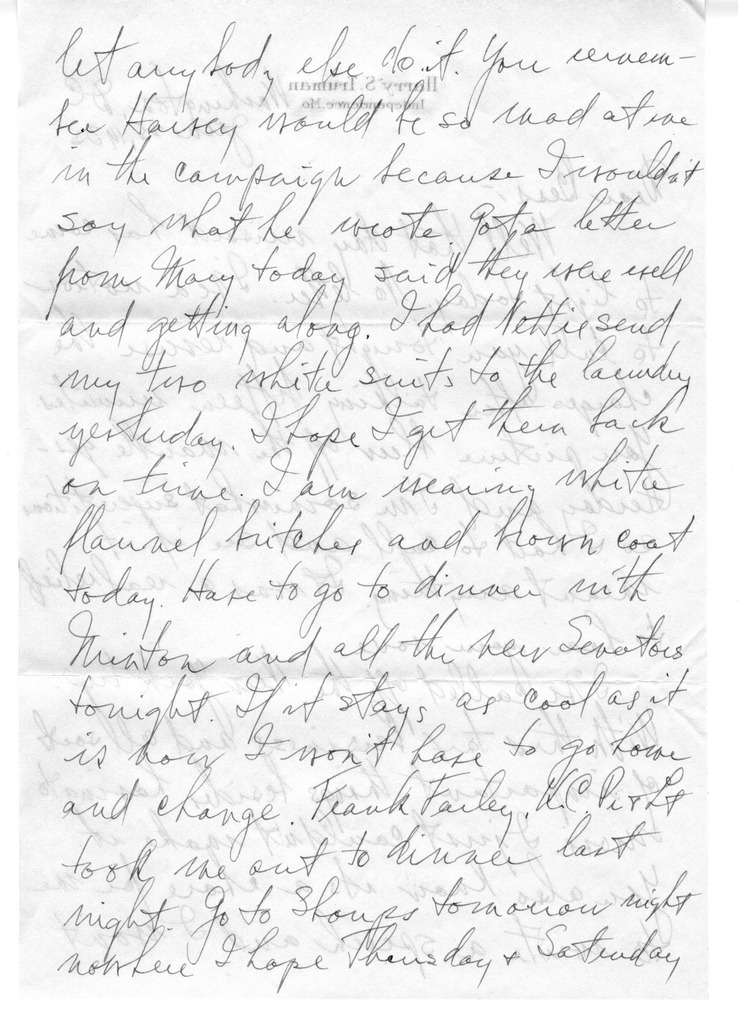 let anybody else do it. You remem-
ber Harvey would be so mad at me
in the campaign because I wouldn't
say what he wrote. Got a letter
from Mary today said they were well
and getting along. I had Nettie send
my two white suits to the laundry
yesterday. I hope I get them back
on time. I am wearing white
flannel britches and brown coat
today. Have to go to dinner with
Minton and all the new Senators
tonight. If it stays as cool as it
is now I won't have to go home
and change. Frank Farley, K.C. P. & Lt
took me out to dinner last
night. Go to Shoups tomorrow night
nowhere I hope Thursday & Saturday
Harry S. Truman
Independence, Mo.